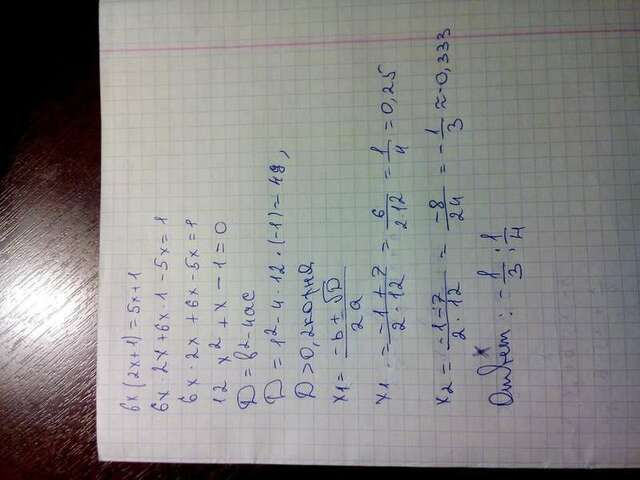 6x(2x+1)=5x+1
6x·2x+6x·1-5x=1
6x·2x+6x-5x=1
12x²+x-1=0
D=b²-4ac
D=1²-4·12·(-1)=49,
D>0,2корня
x1=\frac{-b+\sqrt{D}}{2a}
x1=\frac{-1+7}{2·12}=\frac{6}{2 12}=\frac{1}{4}=0,25
x2=\frac{-1-7}{2·12}=\frac{-8}{24}=-\frac{1}{3}≈-0,333
Ответ:-\frac{1}{3};\frac{1}{4}